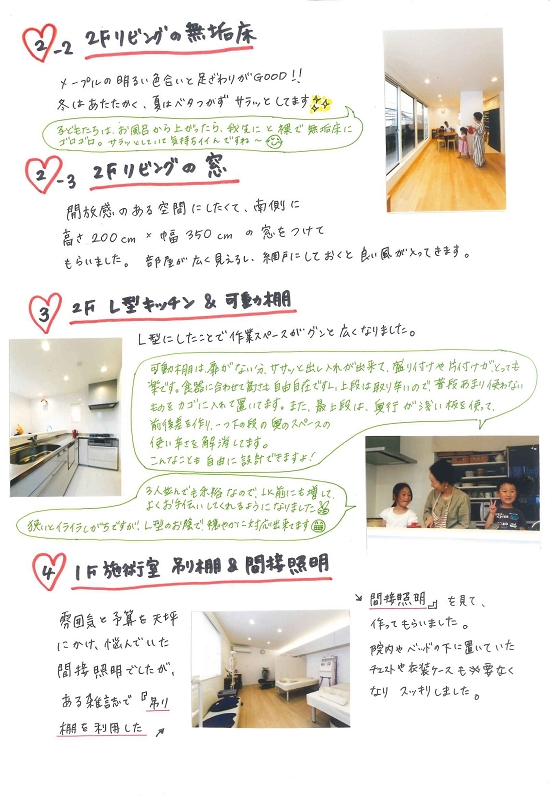 ②-2 2Fリビングの無垢床
メープルの明るい色合いと足ざわりがGOOD!!
冬はあたたかく、夏はベタつかずサラッとしてます
子どもたちは、お風呂から上がったら、我先にと裸で無垢床に
ゴロゴロ。サラッとしていて気持ちイイんですね〜
②-3 2Fリビングの窓
開放感のある空間にしたくて、南側に
高さ200cm×幅350cmの窓をつけて
もらいました。部屋が広く見えるし、網戸にしておくと良い風が入ってきます。
③ 2F L型キッチン&可動棚
L型にしたことで作業スペースがグンと広くなりました。
可動棚は、扉がない分、ササッと出し入れが出来て、盛り付けや片付けが、とっても
楽です。食器に合わせて高さも自由自在ですし、上段は取り辛いので、普段あまり使わない
ものをカゴに入れて置いてます。また、最上段は、奥行が浅い板を使って、
前後差を作り、一つ下の段の奥のスペースの
使い辛さを解消してます。
こんなことも自由に設計できますよ!
3人並んでも余裕なので、以前にも増して、
よくお手伝いしてくれるようになりました
狭いとイライラしがちですが、L型のお陰で穏やかに対応出来てます
④ 1F施術室 吊り棚&間接照明
雰囲気と予算を天秤
にかけ、悩んでいた
間接照明でしたが、
ある雑誌で『吊り
棚を利用した
間接照明』を見て、
作ってもらいました。
院内やベッドの下に置いていた
チェストや衣装ケースも必要なく
なりスッキリしました。